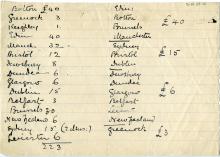 Bolton £40 Erin
Greenock 8 Bolton
Keighley 1. Brussels £40
Erin 40 Manchester
Manch. 32 Sydney
Bristol 12 Bristol £15
Dewsbury 8 Dublin
Dundee 6 Dewsbury
Glasgow 6 Dundee £6
Dublin 15 Glasgow
Belfast 3 Belfast
Brussels 30
New Zealand 6 New Zealand
Sydney 15 Greenock £3
Leicester 6
223